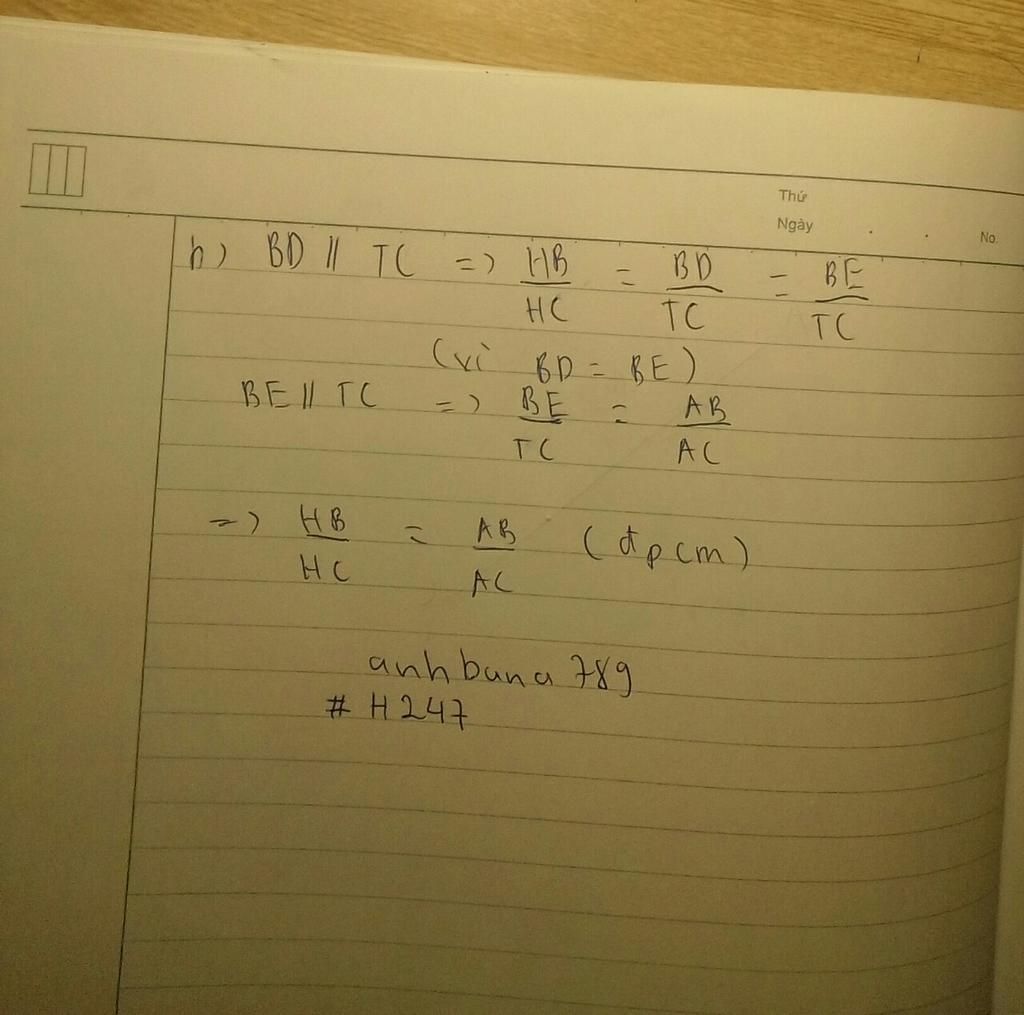 Thứ
Ngày . .
No.
b) BD // TC => HB/HC = BD/TC = BE/TC
(vì BD = BE)
BE // TC => BE/TC = AB/AC
=> HB/HC = AB/AC (đpcm)
anhbuna789
# H247